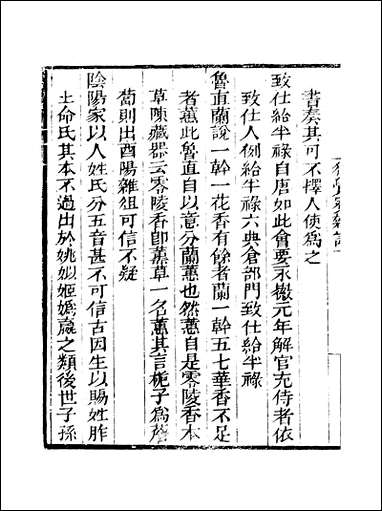 書奏其可不擇人使爲之
致仕給半祿自唐如此會要永徽元年解官充侍者依
致仕人例給半祿六典倉部門致仕給半祿
魯直蘭說一幹一花香有餘者蘭一幹五七華香不足
者蕙此魯直自以意分蘭蕙也然蕙自是零陵香本
草陳藏器云零陵香卽薰草一名蕙其言梔子爲薝
蔔則出酉陽雜俎可信不疑
陰陽家以人姓氏分五音甚不可信古因生以賜姓胙
土命氏其本不過出於姚姒姬嬀嬴之類後世子孫